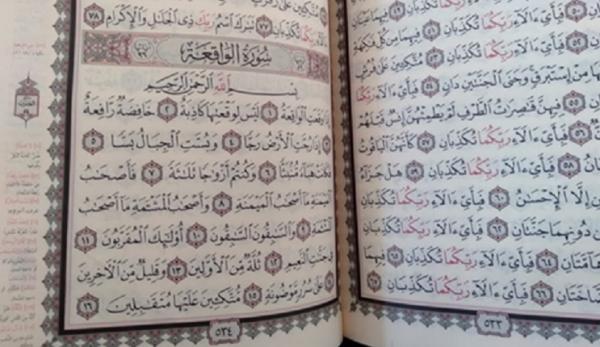 فَبِأَيِّ ءَالَآءِ رَبِّكُمَا تُكَذِّبَانِ ٥١ فِيهِمَا مِن كُلِّ فَٰكِهَةٍ
فَبِأَيِّ ءَالَآءِ رَبِّكُمَا تُكَذِّبَانِ ٥٣ مُتَّكِـِٔينَ عَلَىٰ فُرُشٍ
مِنْ إِسْتَبْرَقٍ وَجَنَى ٱلْجَنَّتَيْنِ دَانٍ ٥٤ فَبِأَيِّ ءَالَآءِ رَبِّكُمَا
٥٥ فِيهِنَّ قَٰصِرَٰتُ ٱلطَّرْفِ لَمْ يَطْمِثْهُنَّ إِنسٌ قَبْلَهُمْ
٥٦ فَبِأَيِّ ءَالَآءِ رَبِّكُمَا تُكَذِّبَانِ ٥٧ كَأَنَّهُنَّ ٱلْيَاقُوتُ
٥٨ فَبِأَيِّ ءَالَآءِ رَبِّكُمَا تُكَذِّبَانِ ٥٩ هَلْ جَزَآءُ
إِلَّا ٱلْإِحْسَٰنُ ٦٠ فَبِأَيِّ ءَالَآءِ رَبِّكُمَا تُكَذِّبَانِ ٦١
دُونِهِمَا جَنَّتَانِ ٦٢ فَبِأَيِّ ءَالَآءِ رَبِّكُمَا تُكَذِّبَانِ ٦٣
٦٤ فَبِأَيِّ ءَالَآءِ رَبِّكُمَا تُكَذِّبَانِ ٦٥ فِيهِمَا
٦٦ فَبِأَيِّ ءَالَآءِ رَبِّكُمَا تُكَذِّبَانِ ٦٧
٥٣٣
رَبِّكُمَا تُكَذِّبَانِ ٧٧ تَبَٰرَكَ ٱسْمُ رَبِّكَ ذِى ٱلْجَلَٰلِ وَٱلْإِكْرَامِ ٧٨
سُورَةُ الوَاقِعَة
بِسْمِ ٱللَّهِ ٱلرَّحْمَٰنِ ٱلرَّحِيمِ
إِذَا وَقَعَتِ ٱلْوَاقِعَةُ ١ لَيْسَ لِوَقْعَتِهَا كَاذِبَةٌ ٢ خَافِضَةٌ رَّافِعَةٌ
٣ إِذَا رُجَّتِ ٱلْأَرْضُ رَجًّا ٤ وَبُسَّتِ ٱلْجِبَالُ بَسًّا ٥
فَكَانَتْ هَبَآءً مُّنۢبَثًّا ٦ وَكُنتُمْ أَزْوَٰجًا ثَلَٰثَةً ٧ فَأَصْحَٰبُ
ٱلْمَيْمَنَةِ مَآ أَصْحَٰبُ ٱلْمَيْمَنَةِ ٨ وَأَصْحَٰبُ ٱلْمَشْـَٔمَةِ مَآ أَصْحَٰبُ
ٱلْمَشْـَٔمَةِ ٩ وَٱلسَّٰبِقُونَ ٱلسَّٰبِقُونَ ١٠ أُو۟لَٰٓئِكَ ٱلْمُقَرَّبُونَ ١١
فِى جَنَّٰتِ ٱلنَّعِيمِ ١٢ ثُلَّةٌ مِّنَ ٱلْأَوَّلِينَ ١٣ وَقَلِيلٌ مِّنَ ٱلْءَاخِرِينَ
١٤ عَلَىٰ سُرُرٍ مَّوْضُونَةٍ ١٥ مُّتَّكِـِٔينَ عَلَيْهَا مُتَقَٰبِلِينَ ١٦
٥٣٤